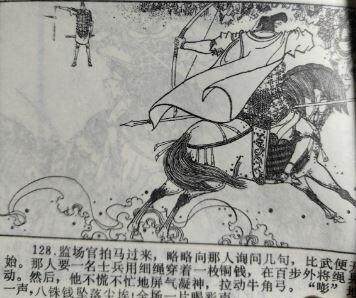 128. 监场官拍马过来，略略向那人询问几句，比武便
始。那人要一名士兵用细绳穿着一枚铜钱，在百步外将绳
动。然后，他不慌不忙地屏气凝神，拉动牛角弓。“嘭”
一声，八铢钱坠落尘埃！全场一片喝彩声